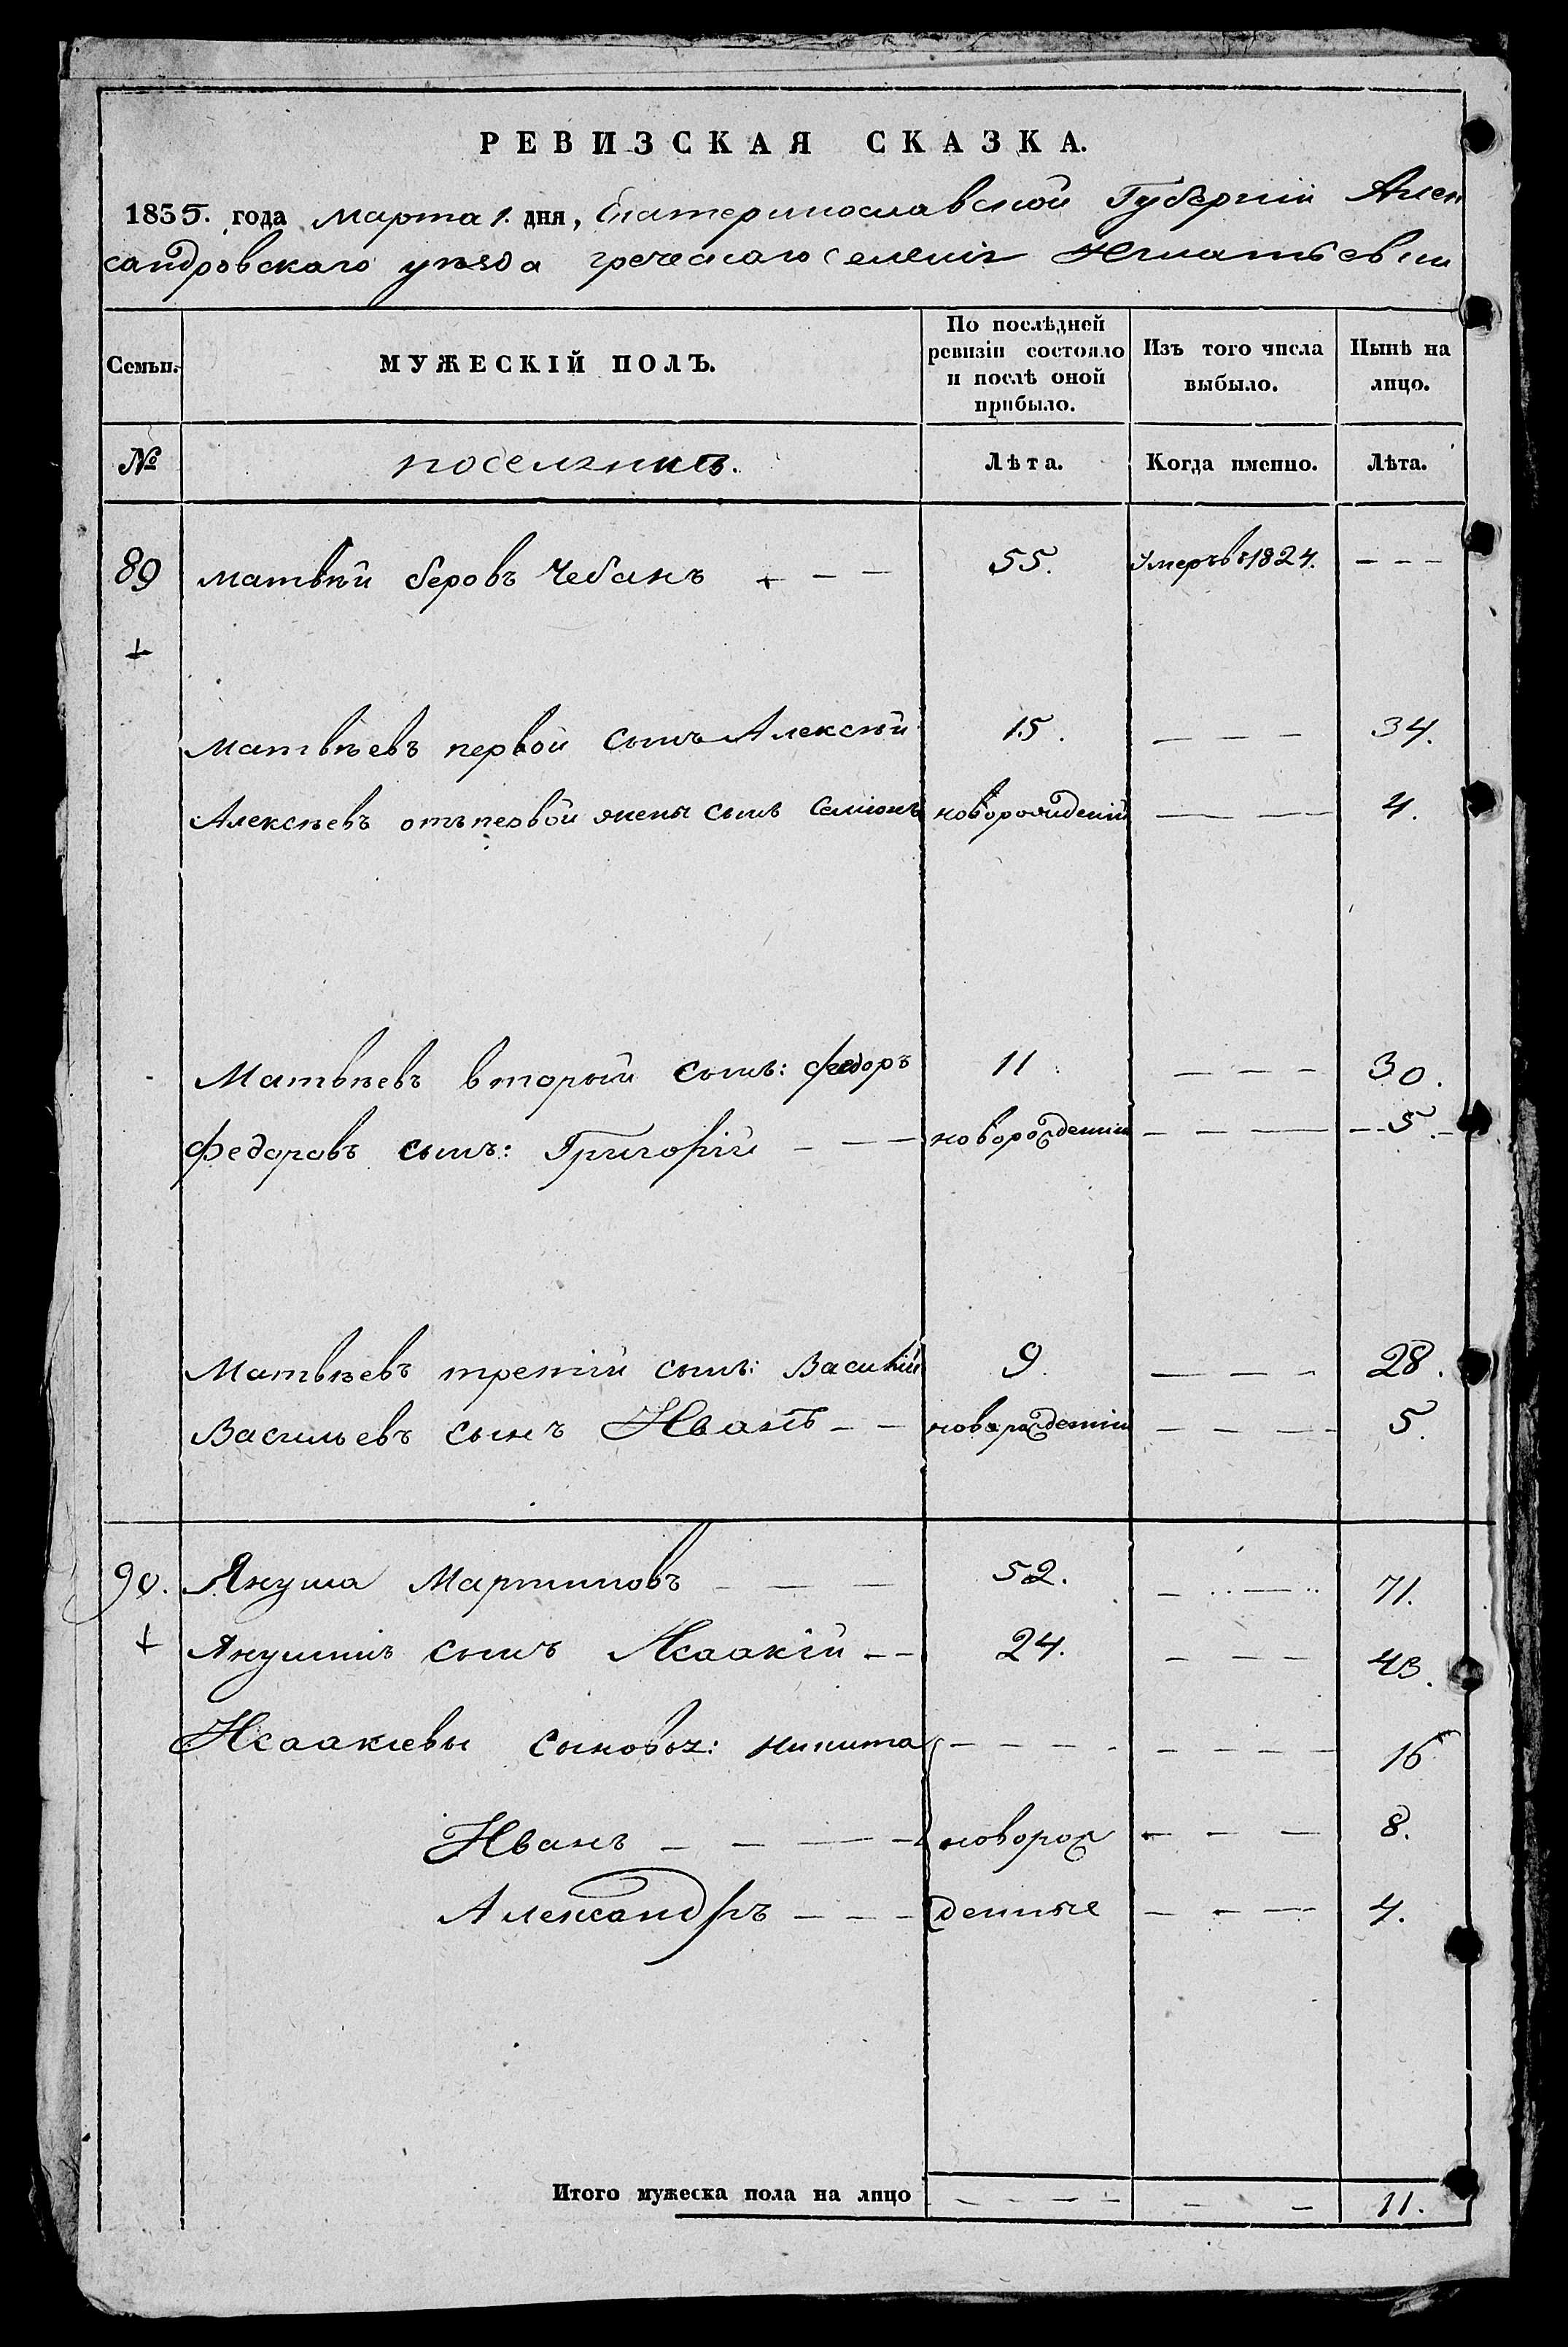 РЕВИЗСКАЯ СКАЗКА.
1835. года марта 1. дня, Екатеринославской Губернiи Алек
сандровскаго уѣзда греческаго селенiя Игнатьевки
Семьи. МУЖЕСКIЙ ПОЛЪ. По послѣдней ревизiи состояло и послѣ оной прибыло. Изъ того числа выбыло. Нынѣ на лицо.
№ поселянъ. Лѣта. Когда именно. Лѣта.
89 Матвѣй беровъ Чебанъ + - - 55. Умеръ въ 1824. - - -
+
Матвѣевъ первой сынъ Алексѣй 15. - - - 34.
Алексѣевъ отъ первой жены сынъ Семiонъ новорожденiй - - - 4.
Матвѣевъ вторый сынъ: Федоръ 11. - - - 30.
Федоровъ сынъ: Григорiй - - - новорожденiй - - - 5.
Матвѣевъ третiй сынъ: Василiй 9. - - - 28.
Васильевъ сынъ Иванъ - - новорожденiй - - - 5.
90. Якуша Мартиновъ - - - 52. - - - 71.
+ Якушинъ сынъ Исаакiй - - 24. - - - 43.
Исаакiевы сыновья: Никита - - - - - - - - 16
Иванъ - - - - новорож - - - 8.
Александръ - - - денные - - - 4.
Итого мужеска пола на лицо - - - - - - 11.